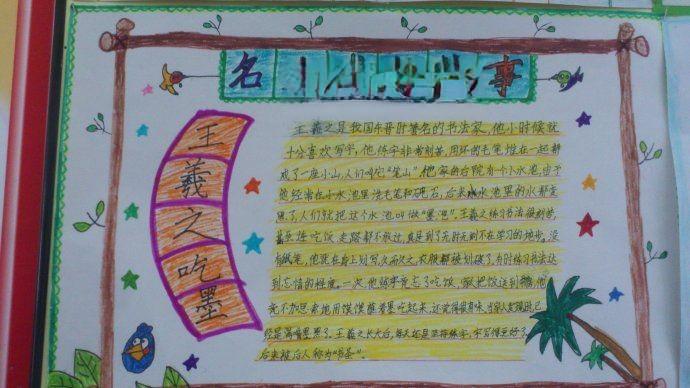 名
事
王羲之吃墨
王羲之是我国东晋时著名的书法家,他小时候就
十分喜欢写字,他练字非常刻苦,用坏的毛笔堆在一起都
成了一座小山,人们叫它"笔山"他家的后院有个小水池,由于
他经常在小水池里洗毛笔和砚石,后来小水池里的水都变
黑了,人们就把这个水池叫做"墨池"。王羲之练习书法很刻苦,
甚至连吃饭走路都不放过,真是到了无时无刻不在学习的地步。没
有纸笔,他就在身上划写,久而久之,衣服都被划破了,有时练习书法达
到忘情的程度。一次,他练字竟忘了吃饭,家人把饭送到书房,他
竟不加思索地用馍馍蘸着墨吃起来,还觉得很有味,当家人发现时,已
经是满嘴墨黑了。王羲之长大后,每天还是坚持练字,字写得更好了,
后来被后人称为"书圣"。